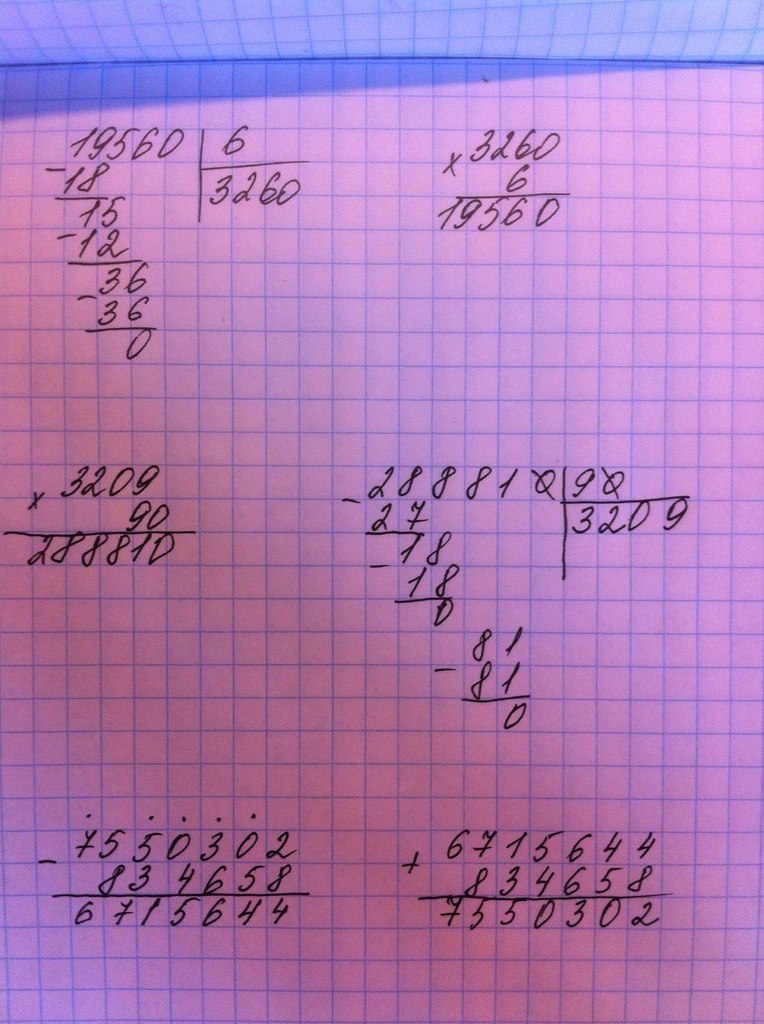 19560 | 6
- 18 | 3260
15
- 12
36
- 36
0
× 3260
6
19560
× 3209
90
288810
- 288810 | 90
27 | 3209
18
- 18
0
81
- 81
0
- 7550302
834658
6715644
+ 6715644
834658
7550302